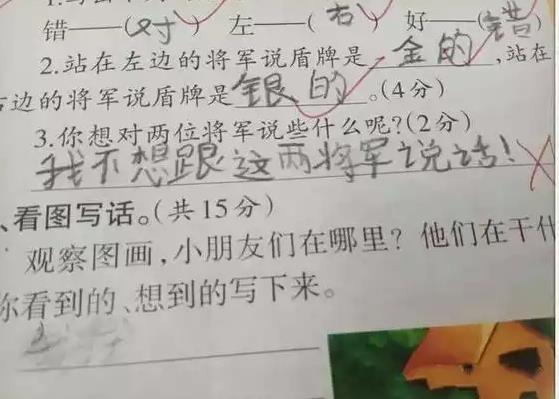 错——(对) 左——(右) 好——(错)
2.站在左边的将军说盾牌是 金的 ,站在
右边的将军说盾牌是 银的 。(4分)
3.你想对两位将军说些什么呢?(2分)
我不想跟这两将军说话!
、看图写话。(共15分)
观察图画,小朋友们在哪里?他们在干什
你看到的、想到的写下来。